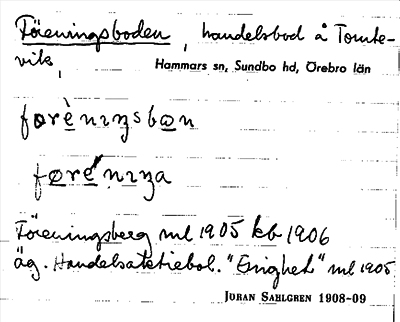 Föreningsboden, handelsbod å Tomte-
vik,
Hammars sn, Sundbo hd, Örebro län
førènıŋsbøn
føre´nıŋa
Föreningsberg ml 1905 kb 1906
äg. Handelsaktiebol. "Enighet" ml 1905
JÖRAN SAHLGREN 1908-09